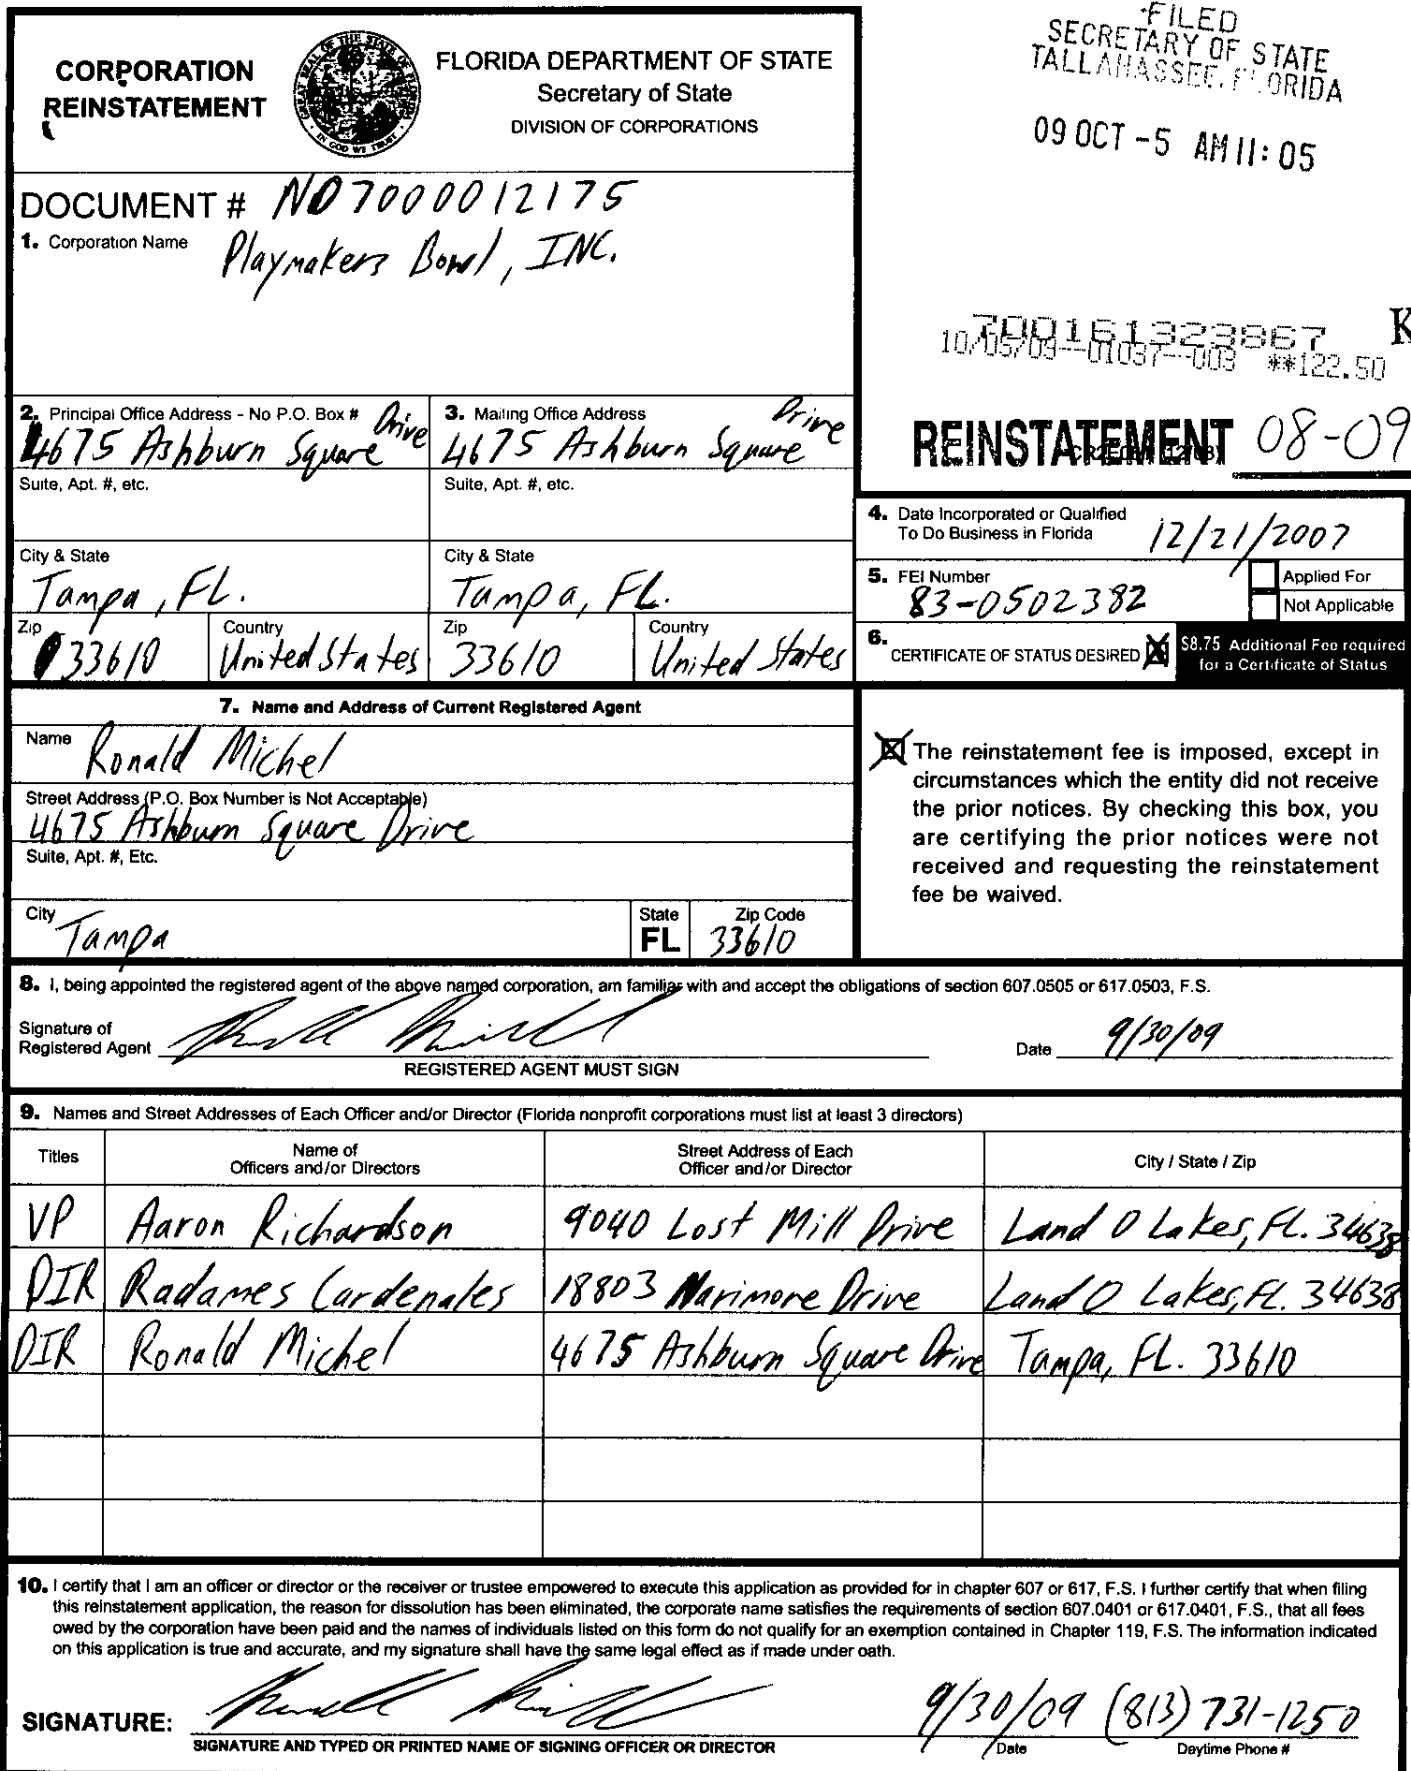 CORPORATION
REINSTATEMENT
GREAT SEAL OF THE STATE OF FLORIDA
IN GOD WE TRUST
FLORIDA DEPARTMENT OF STATE
Secretary of State
DIVISION OF CORPORATIONS
FILED
SECRETARY OF STATE
TALLAHASSEE, FLORIDA
09 OCT -5 AM 11: 05
DOCUMENT # N07000012175
1. Corporation Name Playmakers Bowl, INC.
700161323867
K
10/05/09--01037--003 **122.50
REINSTATEMENT 08-09
2. Principal Office Address - No P.O. Box #
4675 Ashburn Square Drive
Suite, Apt. #, etc.
City & State
Tampa, FL.
Zip 33610
Country United States
3. Mailing Office Address
4675 Ashburn Square Drive
Suite, Apt. #, etc.
City & State
Tampa, FL.
Zip 33610
Country United States
4. Date Incorporated or Qualified
To Do Business in Florida 12/21/2007
5. FEI Number
83-0502382
Applied For
Not Applicable
6. CERTIFICATE OF STATUS DESIRED X
$8.75 Additional Fee required
for a Certificate of Status
7. Name and Address of Current Registered Agent
Name Ronald Michel
Street Address (P.O. Box Number is Not Acceptable)
4675 Ashburn Square Drive
Suite, Apt. #, Etc.
City Tampa
State FL
Zip Code 33610
X The reinstatement fee is imposed, except in
circumstances which the entity did not receive
the prior notices. By checking this box, you
are certifying the prior notices were not
received and requesting the reinstatement
fee be waived.
8. I, being appointed the registered agent of the above named corporation, am familiar with and accept the obligations of section 607.0505 or 617.0503, F.S.
Signature of
Registered Agent
Date 9/30/09
REGISTERED AGENT MUST SIGN
9. Names and Street Addresses of Each Officer and/or Director (Florida nonprofit corporations must list at least 3 directors)
Titles
Name of
Officers and/or Directors
Street Address of Each
Officer and/or Director
City / State / Zip
VP Aaron Richardson 9040 Lost Mill Drive Land O Lakes, FL. 34638
DIR Radames Cardenales 18803 Narimore Drive Land O Lakes, FL. 34638
DIR Ronald Michel 4675 Ashburn Square Drive Tampa, FL. 33610
10. I certify that I am an officer or director or the receiver or trustee empowered to execute this application as provided for in chapter 607 or 617, F.S. I further certify that when filing
this reinstatement application, the reason for dissolution has been eliminated, the corporate name satisfies the requirements of section 607.0401 or 617.0401, F.S., that all fees
owed by the corporation have been paid and the names of individuals listed on this form do not qualify for an exemption contained in Chapter 119, F.S. The information indicated
on this application is true and accurate, and my signature shall have the same legal effect as if made under oath.
SIGNATURE:
9/30/09 (813) 731-1250
SIGNATURE AND TYPED OR PRINTED NAME OF SIGNING OFFICER OR DIRECTOR
Date
Daytime Phone #